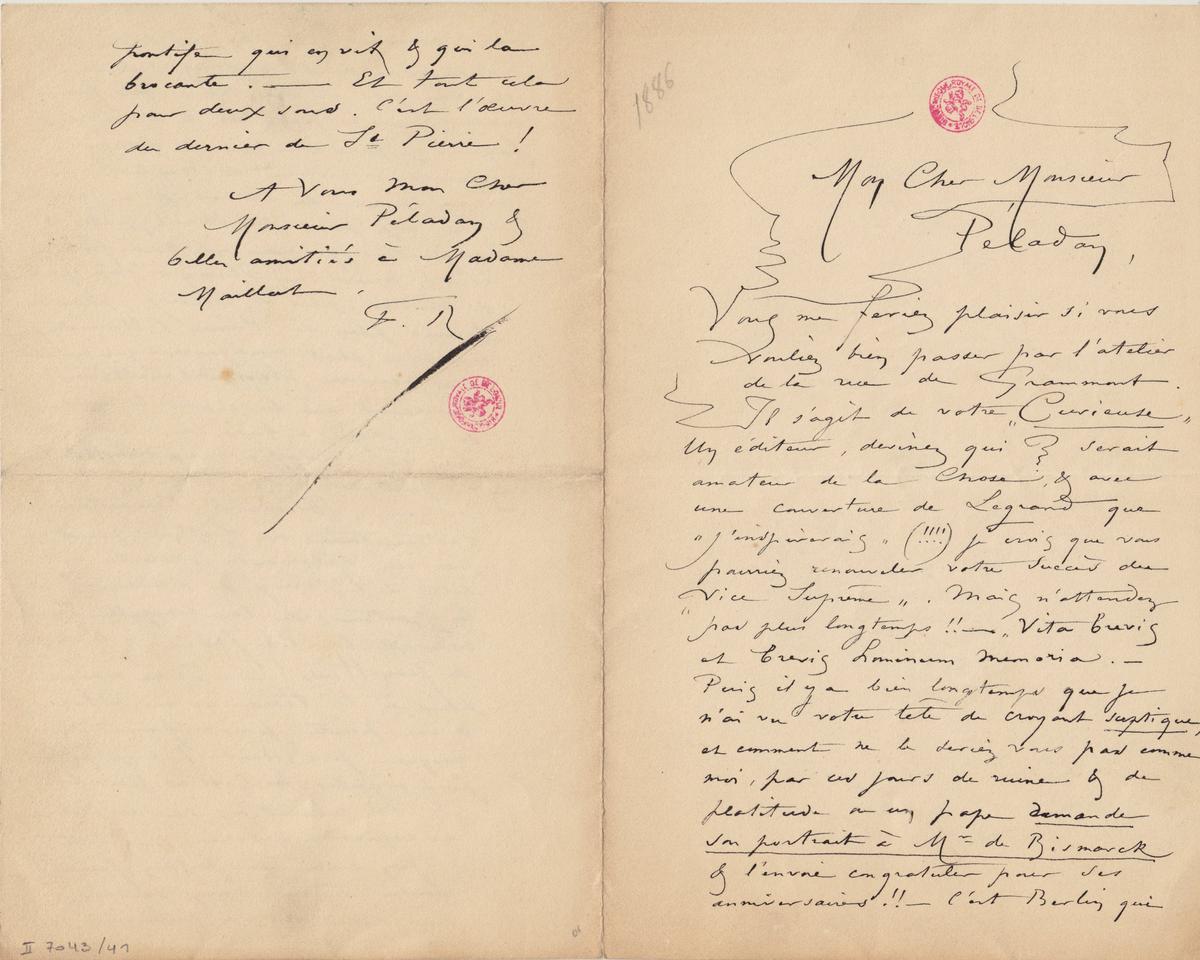 1886
Mon Cher Monsieur
Péladan,
Vous me feriez plaisir si vous
vouliez bien passer par l'atelier
de la rue de Grammont.
Il s'agit de votre „Curieuse„
Un éditeur, devinez qui ? serait
amateur de la Chose, & avec
une couverture de Legrand que
„j'inspirerais„ (!!!!) je crois que vous
pourriez renouveler votre succès du
„Vice Suprême„. Mais n'attendez
pas plus longtemps !!— „Vita brevis
et brevis hominum memoria. —
Puis il y a bien longtemps que je
n'ai vu votre tête de croyant sceptique,
et comment ne le seriez vous pas comme
moi, par ces jours de ruine & de
platitude où un pape demande
son portrait à Mr de Bismarck
& l'envoie congratuler pour ses
anniversaires !!— C'est Berlin qui
pontife qui en vit & qui la
brocante. — Et tout cela
pour deux sous. C'est l'œuvre
du denier de St Pierre !
A Vous mon Cher
Monsieur Péladan &
belles amitiés à Madame
Maillat.
F. R
II 7043/41